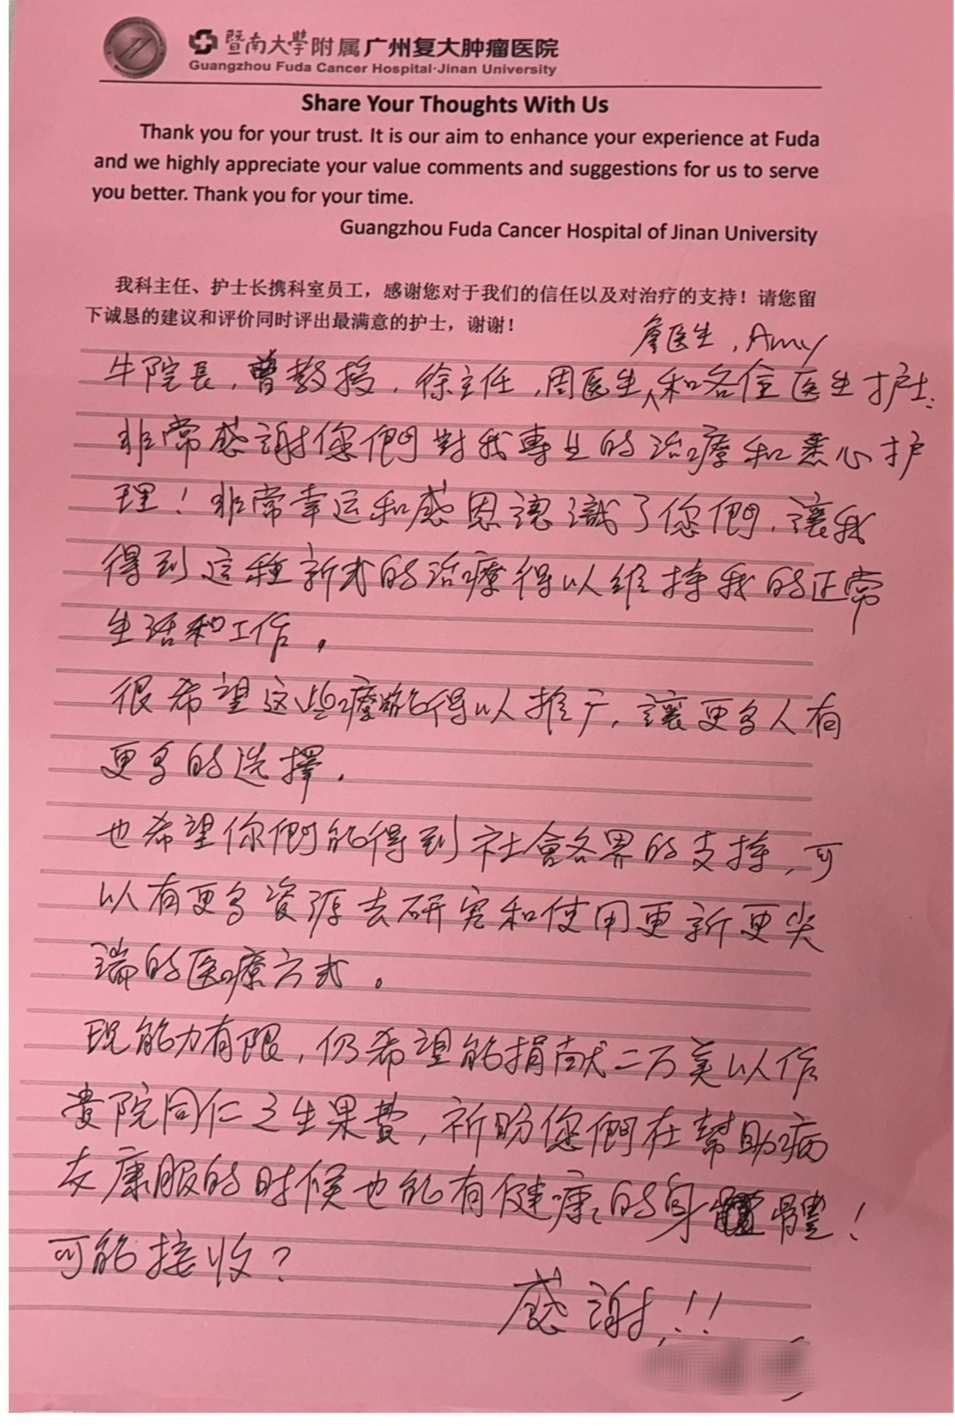 暨南大學附属广州复大肿瘤医院
Guangzhou Fuda Cancer Hospital·Jinan University
Share Your Thoughts With Us
Thank you for your trust. It is our aim to enhance your experience at Fuda
and we highly appreciate your value comments and suggestions for us to serve
you better. Thank you for your time.
Guangzhou Fuda Cancer Hospital of Jinan University
我科主任、护士长携科室员工，感谢您对于我们的信任以及对治疗的支持！请您留
下诚恳的建议和评价同时评出最满意的护士，谢谢！
詹医生，Amy
牛院長，曾教授，徐主任，周医生，和各位医生护士：
非常感謝您們對我專业的治療和悉心护
理！非常幸运和感恩認識了您們，讓我
得到这種新式的治療得以維持我的正常
生活和工作。
很希望这些療能得以推广，讓更多人有
更多的选擇，
也希望你們能得到社會各界的支持，可
以有更多资源去研究和使用更新更尖
端的医療方式。
現能力有限，仍希望能捐献二万美以作
贵院同仁之生果費，祈盼您們在幫助病
友康服的时候也能有健康的身體！
可能接收？
感謝！！